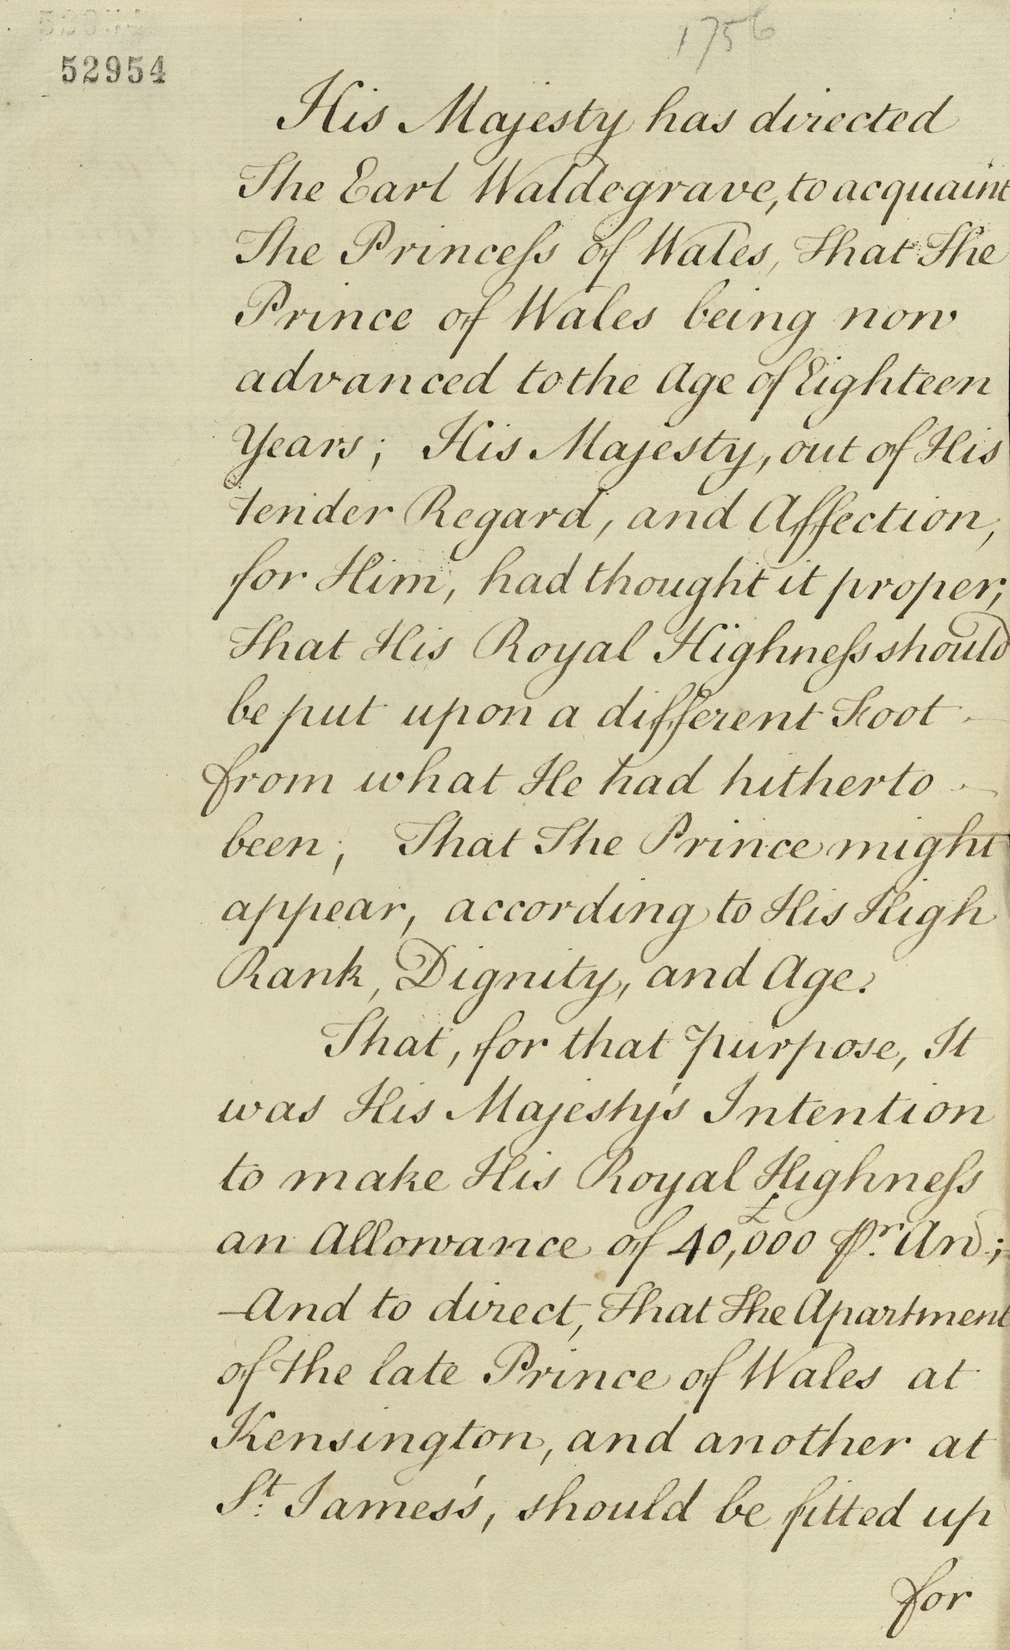 1756
52954
His Majesty has directed
The Earl Waldegrave, to acquaint
The Princess of Wales, That The
Prince of Wales being now
advanced to the Age of Eighteen
Years; His Majesty, out of His
tender Regard, and Affection,
for Him, had thought it proper,
That His Royal Highness should
be put upon a different Foot
from what He had hitherto
been; That The Prince might
appear, according to His High
Rank, Dignity, and Age.
That, for that purpose, It
was His Majesty's Intention
to make His Royal Highness
an Allowance of £40,000 Pr. An;
And to direct, That The Apartment
of the late Prince of Wales at
Kensington, and another at
St. James's, should be fitted up
for